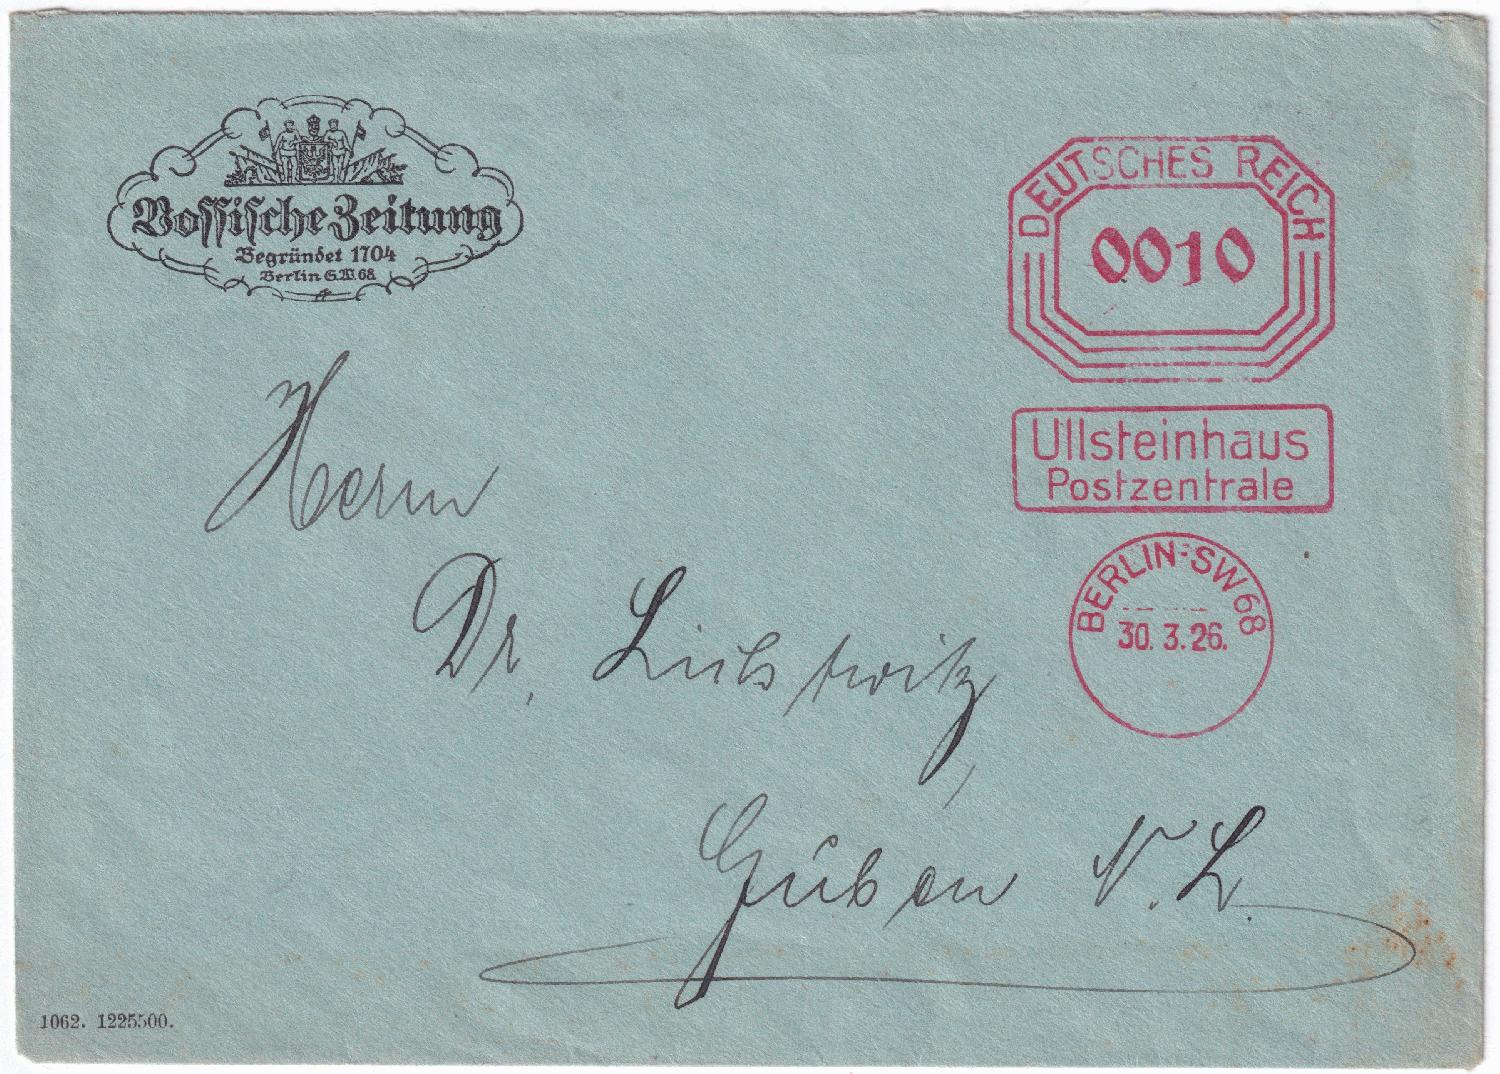 Vossische Zeitung
Begründet 1704
Berlin S.W. 68
DEUTSCHES REICH
0010
Ullsteinhaus
Postzentrale
BERLIN-SW 68
30. 3. 26.
Herrn
Dr.
Guben N. L.
1062. 1225500.